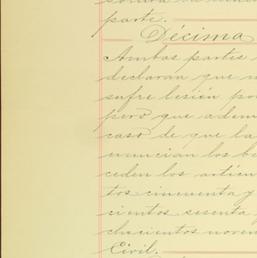 parte.
Décima
Ambas partes
declaran que
sufre lesión
pero que
caso de que la
nuncian los be
ceden los artícu
tos cincuenta y
cientos sesenta y
chocientos noven
Civil.